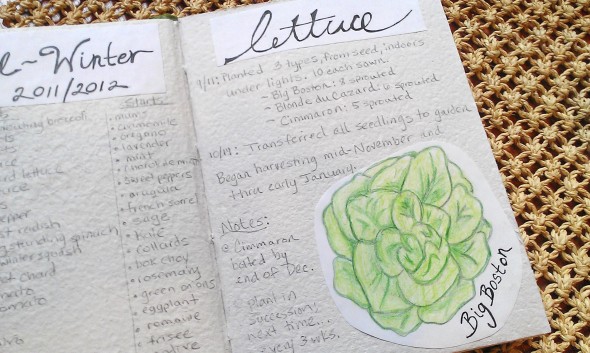 ~Winter
2011/2012
Starts
broccoli
• mums
• oregano
• lavender
• mint
lettuce
• sweet peppers
• arugula
• french sorrel
radish
• sage
spinach
• kale
winter squash
• collards
chard
• bok choy
• rosemary
• green onions
• eggplant
• romaine
• frisee
lettuce
9/11: Planted 3 types, from seed, indoors
under lights. 10 each sown.
~ Big Boston: 8 sprouted
~ Blonde du Cazard: 6 sprouted
~ Cimmaron: 5 sprouted
10/17: Transferred all seedlings to garden
Began harvesting mid-November and
thru early January.
Notes:
Cimmaron
bolted by
end of Dec.
plant in
succession
next time...
every 3 wks.
Big Boston